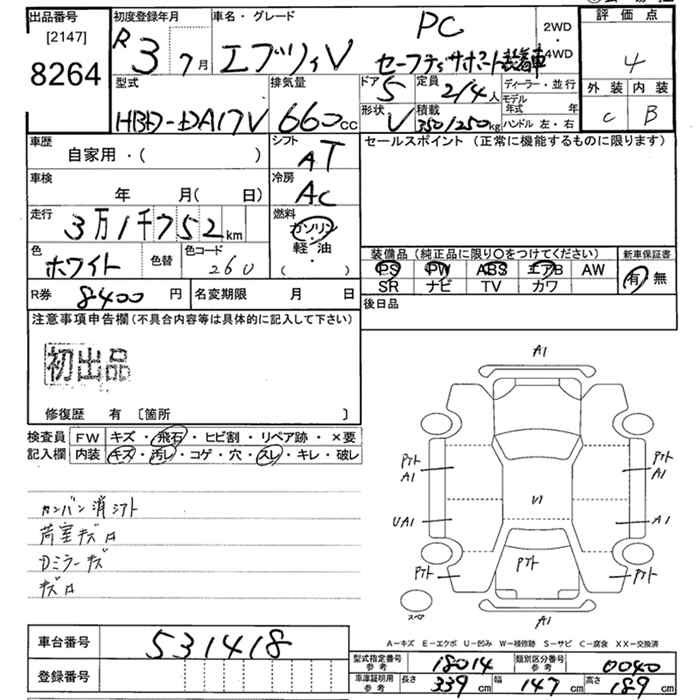 出品番号
[2147]
8264
初度登録年月
R 3 7月
車名・グレード
PC
エブリィV セーフティサポート装着車
2WD
4WD
評価点
4
外装 内装
C B
型式
HBD-DA17V
排気量
660cc
ドア 5
形状 V
定員 2/4人
積載 350/250kg
ディーラー・並行
モデル年式 年
ハンドル 左・右
車歴
自家用・( )
シフト
AT
セールスポイント (正常に機能するものに限ります)
車検
年 月(日)
冷房
AC
走行
3万1千752km
燃料
ガソリン・軽・油
( )
色
ホワイト
色替
色コード
26U
装備品 (純正品に限り〇をつけてください)
新車保証書
PS PW ABS エアB AW
SR ナビ TV カワ
有 無
R券 8400円
名変期限 月 日
後日品
注意事項申告欄(不具合内容等は具体的に記入して下さい)
初出品
修復歴 有 〔箇所 〕
検査員 FW キズ・飛石・ヒビ割・リペア跡・×要
記入欄 内装 キズ・汚レ・コゲ・穴・スレ・キレ・破レ
カンバン消シアト
荷室キズロ
Dミラーキズ
キズロ
A1
Pアト A1
Pアト A1
V1
UA1
A1
Pアト
Pアト
Pアト
スペア
A1
A－キズ E－エクボ U－凹み W－補修跡 S－サビ C－腐食 XX－交換済
車台番号 531418
登録番号
型式指定番号 参考 18014
類別区分番号 参考 0040
車庫証明用 参考 長さ 339cm 幅 147cm 高さ 189cm